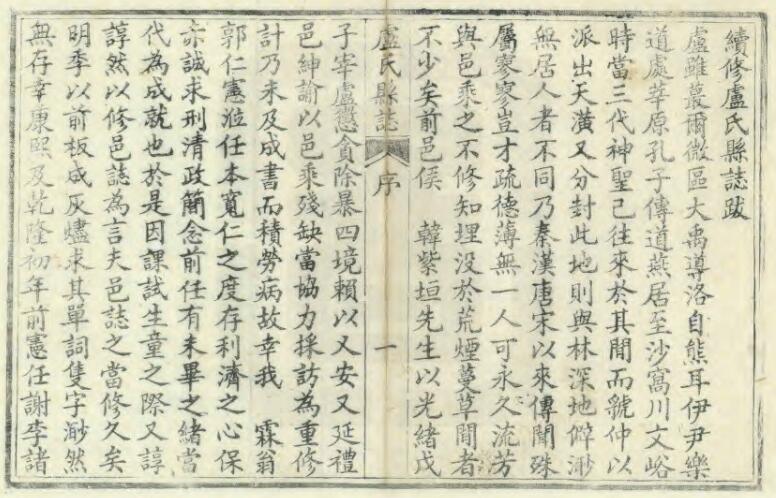 續修盧氏縣誌跋
盧雖蕞爾微區大禹導洛自熊耳伊尹樂
道處莘原孔子傳道燕居至沙窩川文峪
時當三代神聖已往來於其間而虢仲以
派出天潢又分封此地則與林深地僻渺
無居人者不同乃秦漢唐宋以來傳聞殊
屬寥寥豈才疏德薄無一人可永久流芳
與邑乘之不修知埋没於荒煙蔓草間者
不少矣前邑侯 韓紫垣先生以光緒戊
盧氏縣誌 序 一
子宰盧懲貪除暴四境賴以乂安又延禮
邑紳諭以邑乘殘缺當協力採訪為重修
計乃未及成書而積勞病故幸我 霖翁
郭仁憲涖任本寬仁之度存利濟之心保
赤誠求刑清政簡念前任有未畢之緒當
代為成就也於是因課試生童之際又諄
諄然以修邑誌為言夫邑誌之當修久矣
明季以前板成灰燼求其單詞隻字渺然
無存幸康熙及乾隆初年前憲任謝李諸